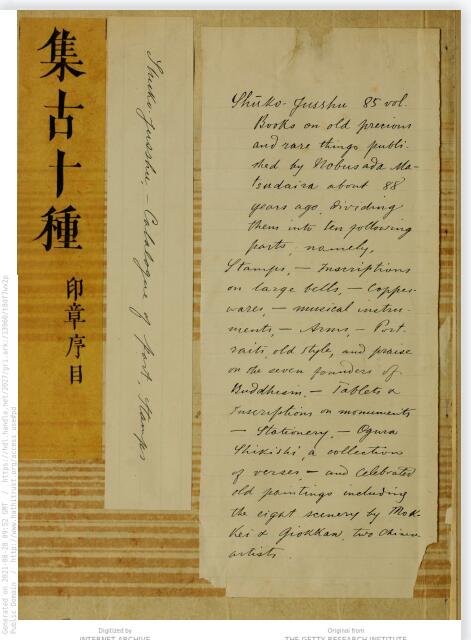 集古十種
印章序目
Shuko-Jusshu, - Catalogue of Part, Stamps
Shūko-Jusshu 85 vol.
Books on old precious
and rare things publi-
shed by Nobusada Ma-
tsudaira about 88
years ago, dividing
them into ten following
parts, namely,
Stamps, - Inscriptions
on large bells, - Copper-
wares, - musical instru-
ments, - Arms, - Port-
raits, old style, and praise
on the seven founders of
Buddhism, - Tablets &
Inscriptions on monuments
- Stationery, - Ogura
Shikishi, a collections
of verses, - and Celebrated
old paintings including
the eight scenery by Mok-
kei & Giokkan, two Chinese
artists.
Generated on 2021-08-28 09:52 GMT / https://hdl.handle.net/2027/gri.ark:/13960/
Public Domain / http://www.hathitrust.org/access_use#pd
Digitized by
INTERNET ARCHIVE
Original from
THE GETTY RESEARCH INSTITUTE